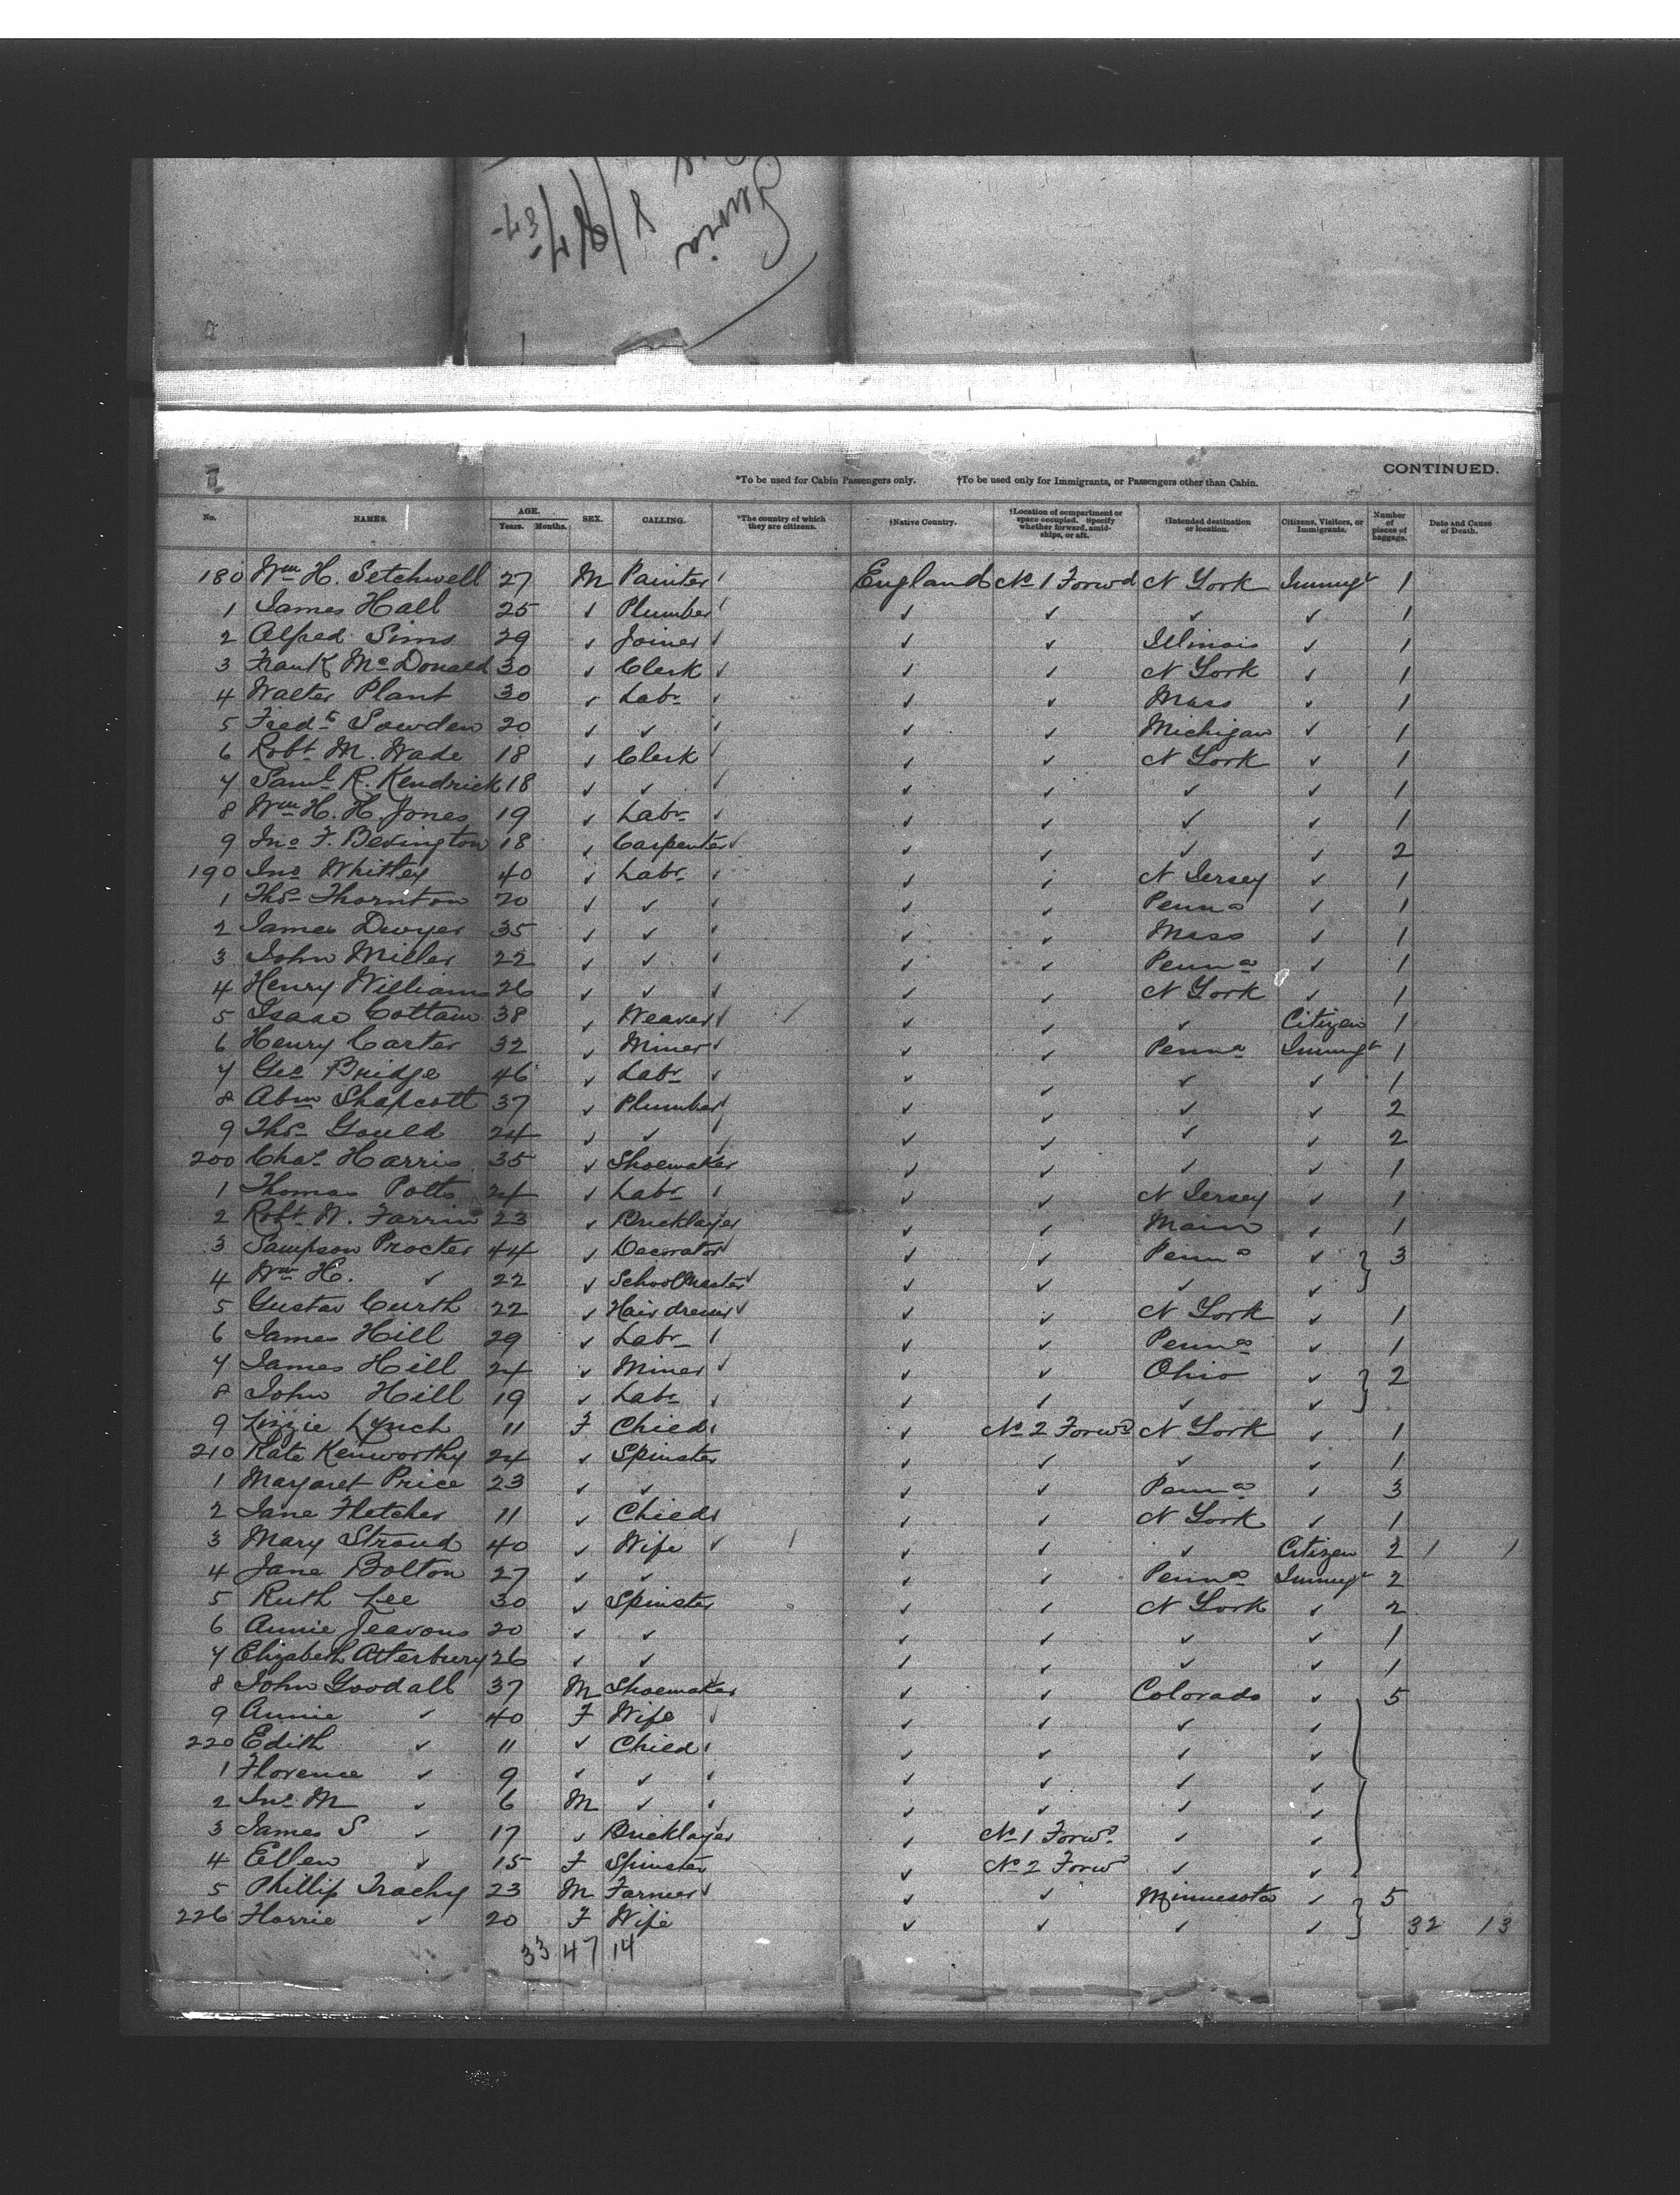 CONTINUED.
*To be used for Cabin Passengers only. †To be used only for Immigrants, or Passengers other than Cabin.
No. NAMES. AGE. Years. Months. SEX. CALLING. *The country of which they are citizens. †Native Country. †Location of compartment or space occupied. Specify whether forward, amidships, or aft. †Intended destination or location. Citizens, Visitors, or Immigrants. Number of pieces of baggage. Date and Cause of Death.
180 Wm H. Setchwell 27 M Painter England No 1 Forwd N York Immigt 1
1 James Hall 25 ✓ Plumber ✓ ✓ ✓ ✓ 1
2 Alfred Sims 29 ✓ Joiner ✓ ✓ Illinois ✓ 1
3 Frank McDonald 30 ✓ Clerk ✓ ✓ N York ✓ 1
4 Walter Plant 30 ✓ Labr ✓ ✓ Mass ✓ 1
5 Fredk Sowden 20 ✓ ✓ ✓ ✓ Michigan ✓ 1
6 Robt M. Wade 18 ✓ Clerk ✓ ✓ N York ✓ 1
7 Saml R. Kendrick 18 ✓ ✓ ✓ ✓ ✓ ✓ 1
8 Wm H. H. Jones 19 ✓ Labr ✓ ✓ ✓ ✓ 1
9 Jno F. Bevington 18 ✓ Carpenter ✓ ✓ ✓ ✓ 2
190 Jno Whitley 40 ✓ Labr ✓ ✓ N Jersey ✓ 1
1 Thos Thornton 20 ✓ ✓ ✓ ✓ Penna ✓ 1
2 James Dwyer 35 ✓ ✓ ✓ ✓ Mass ✓ 1
3 John Miller 22 ✓ ✓ ✓ ✓ Penna ✓ 1
4 Henry Williams 26 ✓ ✓ ✓ ✓ N York ✓ 1
5 Isaac Cottam 38 ✓ Weaver ✓ ✓ ✓ Citizen 1
6 Henry Carter 32 ✓ Miner ✓ ✓ Penna Immigt 1
7 Geo Bridge 46 ✓ Labr ✓ ✓ ✓ ✓ 1
8 Abm Shapcott 37 ✓ Plumber ✓ ✓ ✓ ✓ 2
9 Thos Gould 24 ✓ ✓ ✓ ✓ ✓ ✓ 2
200 Chas Harris 35 ✓ Shoemaker ✓ ✓ ✓ ✓ 1
1 Thomas Potts 24 ✓ Labr ✓ ✓ N Jersey ✓ 1
2 Robt W. Farrin 23 ✓ Bricklayer ✓ ✓ Main ✓ 1
3 Sampson Procter 44 ✓ Decorator ✓ ✓ Penna ✓ 3
4 Wm H. ✓ 22 ✓ Schoolmaster ✓ ✓ ✓ ✓
5 Gustav Curth 22 ✓ Hairdresser ✓ ✓ N York ✓ 1
6 James Hill 29 ✓ Labr ✓ ✓ Penna ✓ 1
7 James Hill 24 ✓ Miner ✓ ✓ Ohio ✓ 2
8 John Hill 19 ✓ Labr ✓ ✓ ✓ ✓
9 Lizzie Lynch 11 F Child ✓ No 2 Forwd N York ✓ 1
210 Kate Kenworthy 24 ✓ Spinster ✓ ✓ ✓ ✓ 1
1 Margaret Price 23 ✓ ✓ ✓ ✓ Penna ✓ 3
2 Jane Fletcher 11 ✓ Child ✓ ✓ N York ✓ 1
3 Mary Stroud 40 ✓ Wife ✓ ✓ ✓ Citizen 2 1 1
4 Jane Bolton 27 ✓ ✓ ✓ ✓ Penna Immigt 2
5 Ruth Lee 30 ✓ Spinster ✓ ✓ N York ✓ 2
6 Annie Jeavons 20 ✓ ✓ ✓ ✓ ✓ ✓ 1
7 Elizabeth Atterbury 26 ✓ ✓ ✓ ✓ ✓ ✓ 1
8 John Goodall 37 M Shoemaker ✓ ✓ Colorado ✓ 5
9 Annie ✓ 40 F Wife ✓ ✓ ✓ ✓
220 Edith ✓ 11 ✓ Child ✓ ✓ ✓ ✓
1 Florence ✓ 9 ✓ ✓ ✓ ✓ ✓ ✓
2 Jno M ✓ 6 M ✓ ✓ ✓ ✓ ✓
3 James S ✓ 17 ✓ Bricklayer ✓ No 1 Forwd ✓ ✓
4 Ellen ✓ 15 F Spinster ✓ No 2 Forwd ✓ ✓
5 Phillip Trachy 23 M Farmer ✓ ✓ Minnesota ✓ 5
226 Florrie ✓ 20 F Wife ✓ ✓ ✓ ✓ 32 13
33 47 14